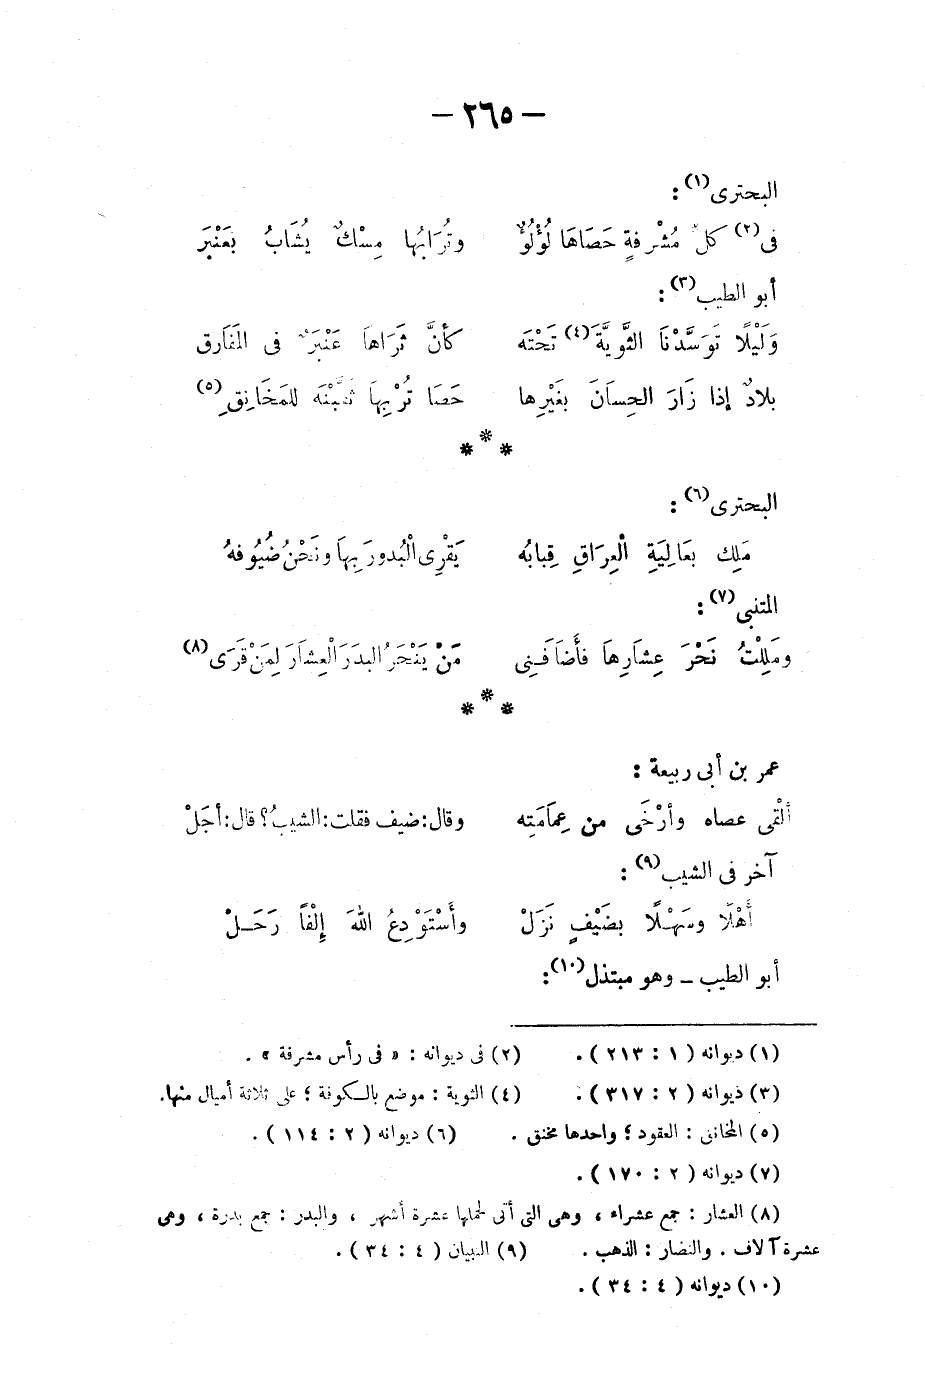 — ٢٦٥ —
البحترى(١) :
فى(٢) كلِّ مُشْرِفةٍ حَصَاهَا لُؤْلُؤٌ وتُرَابُها مِسْكٌ يُشَابُ بعَنْبَرَ
أبو الطيب(٣) :
وَلَيْلًا تَوَسَّدْنَا الثَّوِيَّةَ(٤) تَحْتَه كأنَّ ثَرَاهاَ عَنْبَرٌ فى المَفَارق
بلادٌ إذا زَارَ الحِسانَ بغَيْرِها حَصَا تُرْبِهاَ ثقَّبْنَه للمَخَانِقِ(٥)
***
البحترى(٦) :
مَلِك بعَالِيَةِ الْعِرَاقِ قِبابُه يَقْرِى الْبُدورَ بِهاَ ونَحْنُ ضُيُوفهُ
المتنبى(٧) :
ومَلِلْتُ نَحْرَ عِشَارِهاَ فأَضَافَنِى مَنْ يَنْحَرُ البدَرَ الْعِشَارَ لِمَنْ قَرَى(٨)
***
عمر بن أبى ربيعة :
ألْقى عصاه وأرْخَى من عِمَامَتِه وقال: ضيف فقلت: الشيبُ؟ قال: أجَلْ
آخر فى الشيب(٩) :
أَهْلًا وسَهْلًا بضَيْفٍ نَزَلْ وأَسْتَوْدِعُ اللهَ إِلْفًا رَحَلْ
أبو الطيب – وهو مبتذل(١٠):
(١) ديوانه ( ١ : ٢١٣ ) . (٢) فى ديوانه : « فى رأس مشرفة » .
(٣) ديوانه ( ٢ : ٣١٧ ) . (٤) الثوية : موضع بالكوفة ؛ على ثلاثة أميال منها.
(٥) المخانق : العقود ؛ واحدها مخنق . (٦) ديوانه ( ٢ : ١١٤ ) .
(٧) ديوانه ( ٢ : ١٧٠ ) .
(٨) العشار : جمع عشراء ، وهى التى أتى لحملها عشرة أشهر ، والبدر : جمع بدرة ، وهى
عشرة آلاف . والنضار : الذهب . (٩) البيان ( ٤ : ٣٤ ) .
(١٠) ديوانه ( ٤ : ٣٤ ) .